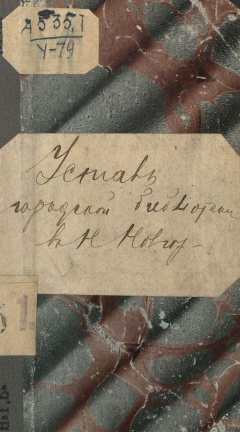 А 535,1
У-79
Уставъ
городской библіотеки
в Н Новгор-
1